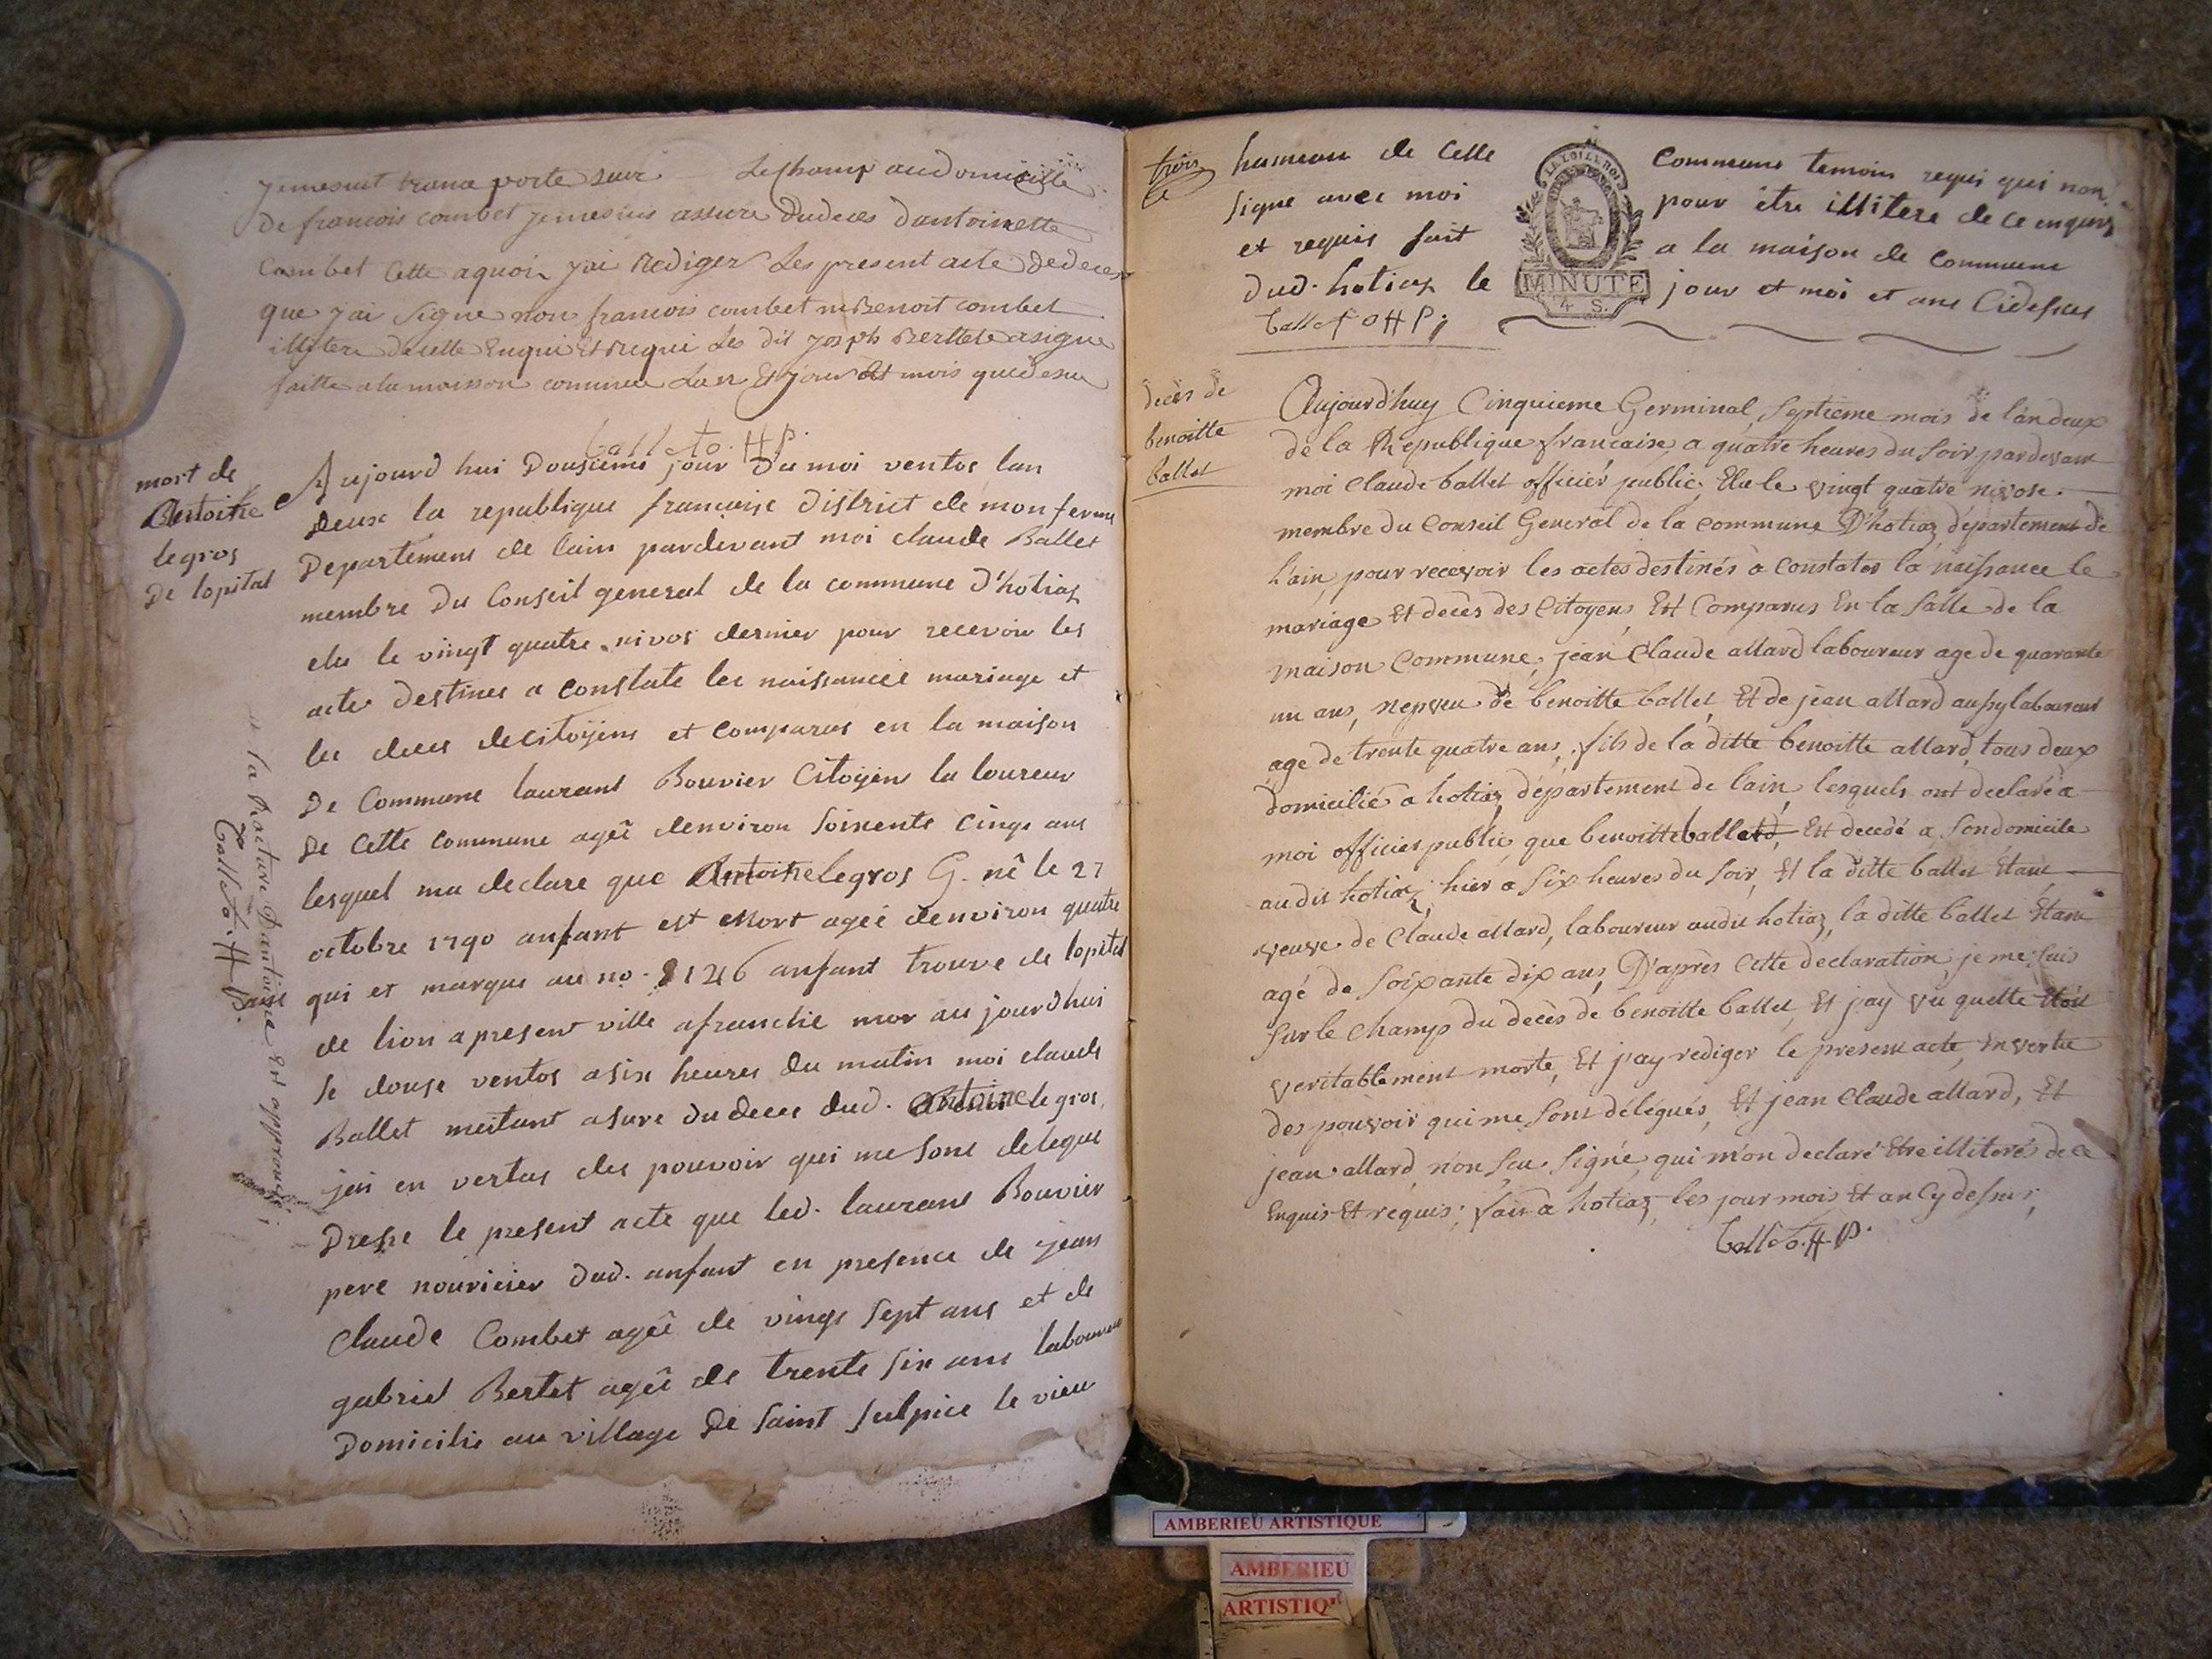 jemesuit trance porte sur Le Champ audomicille
de francois combet jemesuis assure dudeces dantoinette
Combet Cette aquoi jai Rediger Les present acte dedeces
que jai signe non francois combet ni Benoit combet
illitere de cette Enqui Et Requi Les dit joseph Berthet asigne
faitte a lamoison commune Lan Et jour et mois quedesu
Ballet o. H p.
mort de
Antoine
legros
De lopital
Aujourd hui Dousieme jour Du moi ventos lan
Deux la republique francaise District de mon ferme
Departemens de lain pardevant moi claude Ballet
membre Du Conseil general de la commune D'hotiaz
elu le vingt quatre nivos dernier pour recevoir les
acte Destines a constate les naissances mariage et
les deces decitoyens et comparus en la maison
De Commune laurans Bouvier Citoyen laboureur
De cette commune agée denviron soixente cinqs ans
lesquel ma declare que Antoine legros G. né le 27
octobre 1790 anfant est Mort agéé denviron quatre
ans
qui et marque au no. 8126 anfant trouve de lopital
de lion apresent ville afranchie mor aujourdhui
le douse ventos asix heures du matin moi claude
Ballet meitant asure dudeces dud. Antoine legros
jai en vertus des pouvoir qui me sont delegue
Dresse le present acte que led. laurans Bouvier
pere nouricier dud. anfant en presence de jean
Claude Combet agéé de vings sept ans et de
gabriel Bertet agéé de trente six ans laboureur
Domicilie au village De saint sulpice le vieu
la Rature Dantoine Est approuvé;
Ballet o. H p.
trois
hameau de Celle
signe avec moi
et requis fait
dud. hotiaz le
Ballet o H P;
LA LOI LE ROI
MINUTE
4 S.
Commune temoin requi qui non
pour etre illitere de ce enquis
a la maison de commune
jour et moi et ans Cidesus
decès de
benoitte
ballet
Aujourd'huy Cinquieme Germinal, septieme mois de l'an deux
de la Republique francaise, a quatre heures du soir pardevant
moi Claude ballet officier public. Elu le vingt quatre nivose.
membre du Conseil General de la commune D'hotiaz, departement de
l'ain, pour recevoir les actes destinés a Constater la naissance le
mariage Et decès des Citoyens, Est Comparus En la Salle de la
maison Commune, jean Claude allard laboureur age de quarante
un ans, nepveu de benoitte ballet, Et de jean allard aussy laboureur
age de trente quatre ans, fils de la ditte benoitte allard, tous deux
domicilié a hotiaz, département de lain, lesquels ont declaré a
moi officier public que benoitte ballet, Est decedé a son domicile
audit hotiaz, hier a Six heures du soir, Et la ditte ballet Etant
veuve de Claude allard, laboureur audit hotiaz, la ditte ballet Etant
agé de soixante dix ans, D'après Cette declaration, je me suis
sur le Champs du decès de benoitte ballet, Et jay vu quelle Etoit
veritablement morte, Et j'ay rediger le present acte, en vertu
des pouvoir qui me sont délégués, Et jean Claude allard, Et
jean allard, non scu signé, qui m'on declaré Etre illiteré de ce
Enquis Et requis; fait a hotiaz, les jour mois Et an Cy dessus;
Ballet o. H. P.
AMBERIEU ARTISTIQUE
AMBERIEU
ARTISTIQ